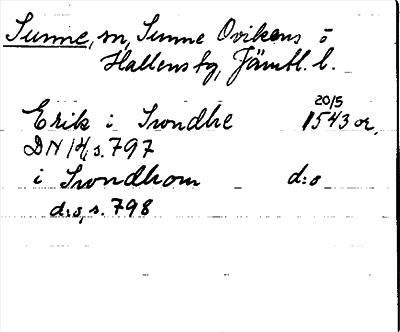 Sunne, sn, Sunne Ovikens i
Hallens tg, Jämtl. l.
20/5
Erik i Trondhe 1543 or.
DN 14, s. 797
i Trondhom d:o
d:o, s. 798